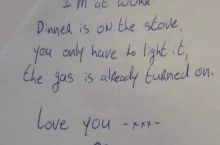 I'm at work
Dinner is on the stove,
you only have to light it,
the gas is already turned on.
Love you -xxx-